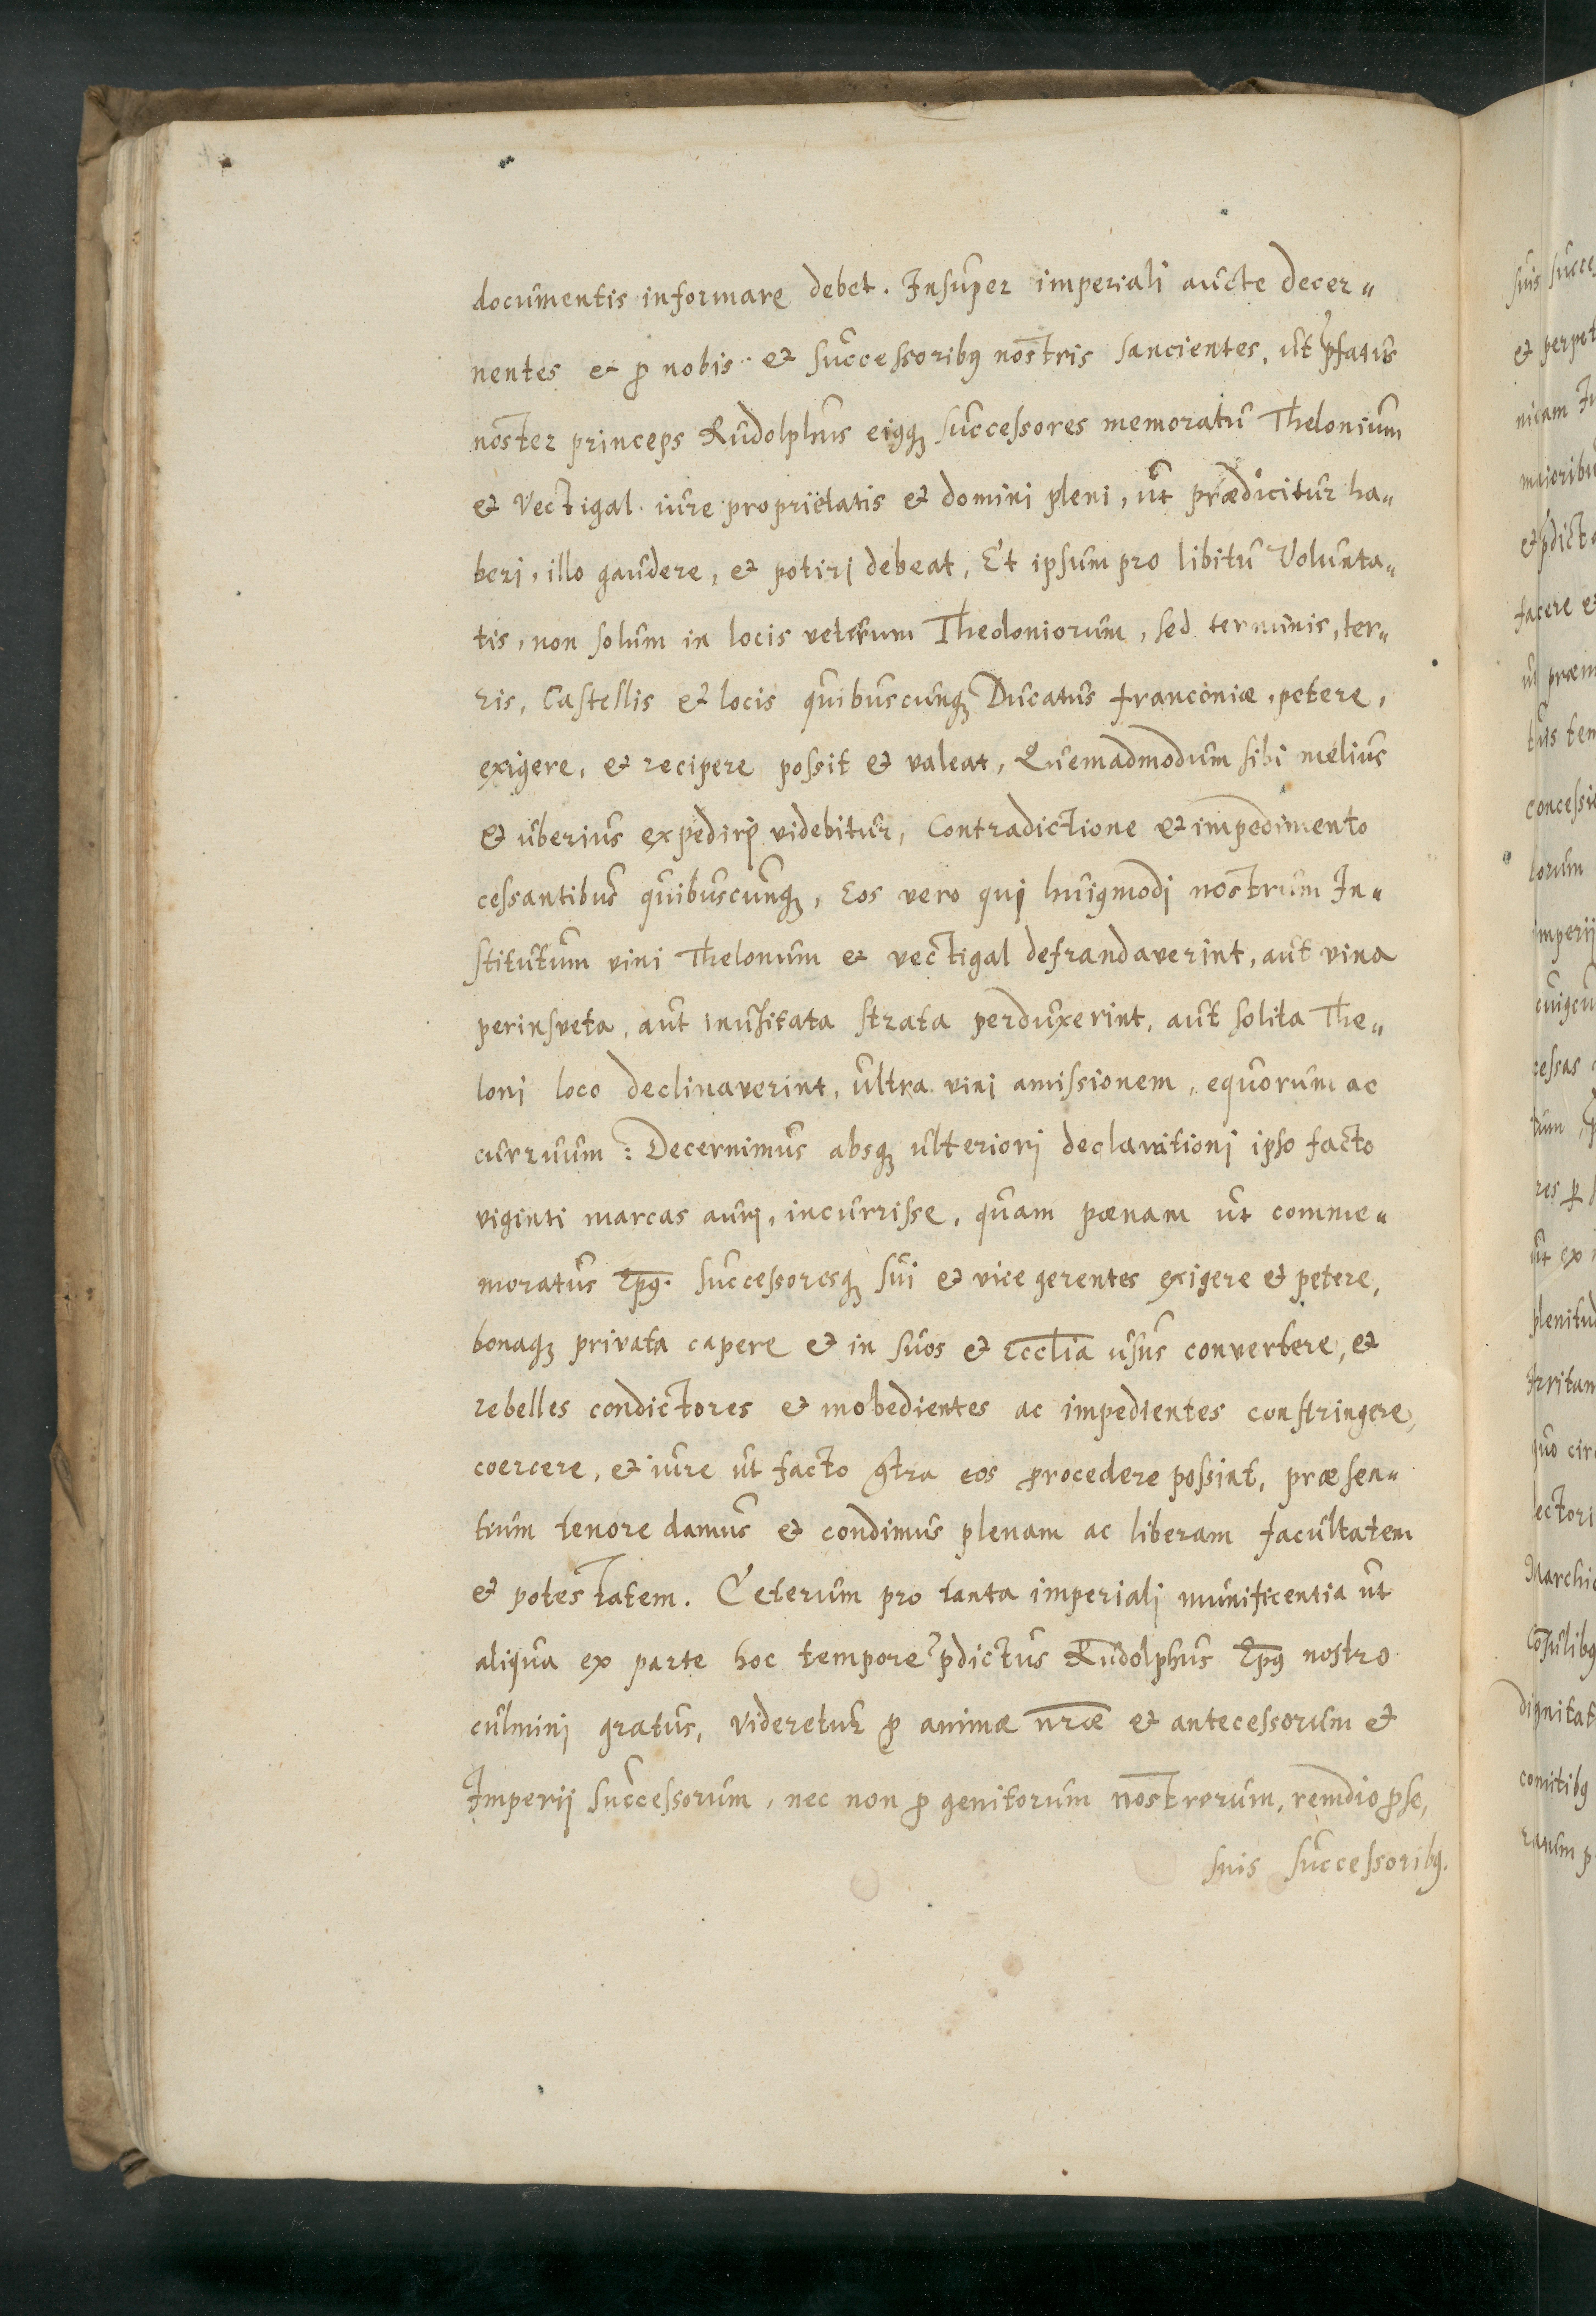 documentis informare debet. Insuper imperiali aucte decer„
nentes et ꝓ nobis et successoribꝰ nostris sancientes, ut p̃fatus
noster princeps Rudolphus eiꝰqꝫ successores memoratū Thelonium
et Vectigal iure proprietatis et domini pleni, ut prædicitur ha„
beri, illo gaudere, et potiri debeat, Et ipsum pro libitu Volunta„
tis, non solum in locis veterum Theoloniorum, sed terminis, ter„
ris, Castellis et locis quibuscunqꝫ Ducatus franconiæ, petere,
exigere, et recipere possit et valeat, Quemadmodum sibi melius
et uberius expediri videbitur, Contradictione et impedimento
cessantibus quibuscunqꝫ, Eos vero qui huiꝰmodi nostrum In„
stitutum vini Thelonum et vectigal defrandaverint, aut vina
per insveta, aut inusitata strata perduxerint, aut solita The„
loni loco declinaverint, ultra vini amissionem, equorum ac
curruum: Decernimus absqꝫ ulteriori declarationi ipso facto
viginti marcas auri, incurrisse, quam pœnam ut comme„
moratus Ep̅ꝰ. successoresqꝫ sui et vice gerentes exigere et petere,
bonaqꝫ privata capere et in suos et Eccl̅ia usus convertere, et
rebelles condictores et inobedientes ac impedientes constringere,
coercere, et iure ut facto ꝯtra eos procedere possint, præsen„
tium tenore damus et condimus plenam ac liberam facultatem
et potestatem. Ceterum pro tanta imperiali munificentia ut
aliqua ex parte hoc tempore p̃dictus Rudolphus Ep̅ꝰ nostro
culmini gratus, videretur ꝓ animæ nr̅æ et antecessorum et
Imperij successorum, nec non ꝓ genitorum nostrorum, remdio ꝓ se,
suis successoribꝰ.